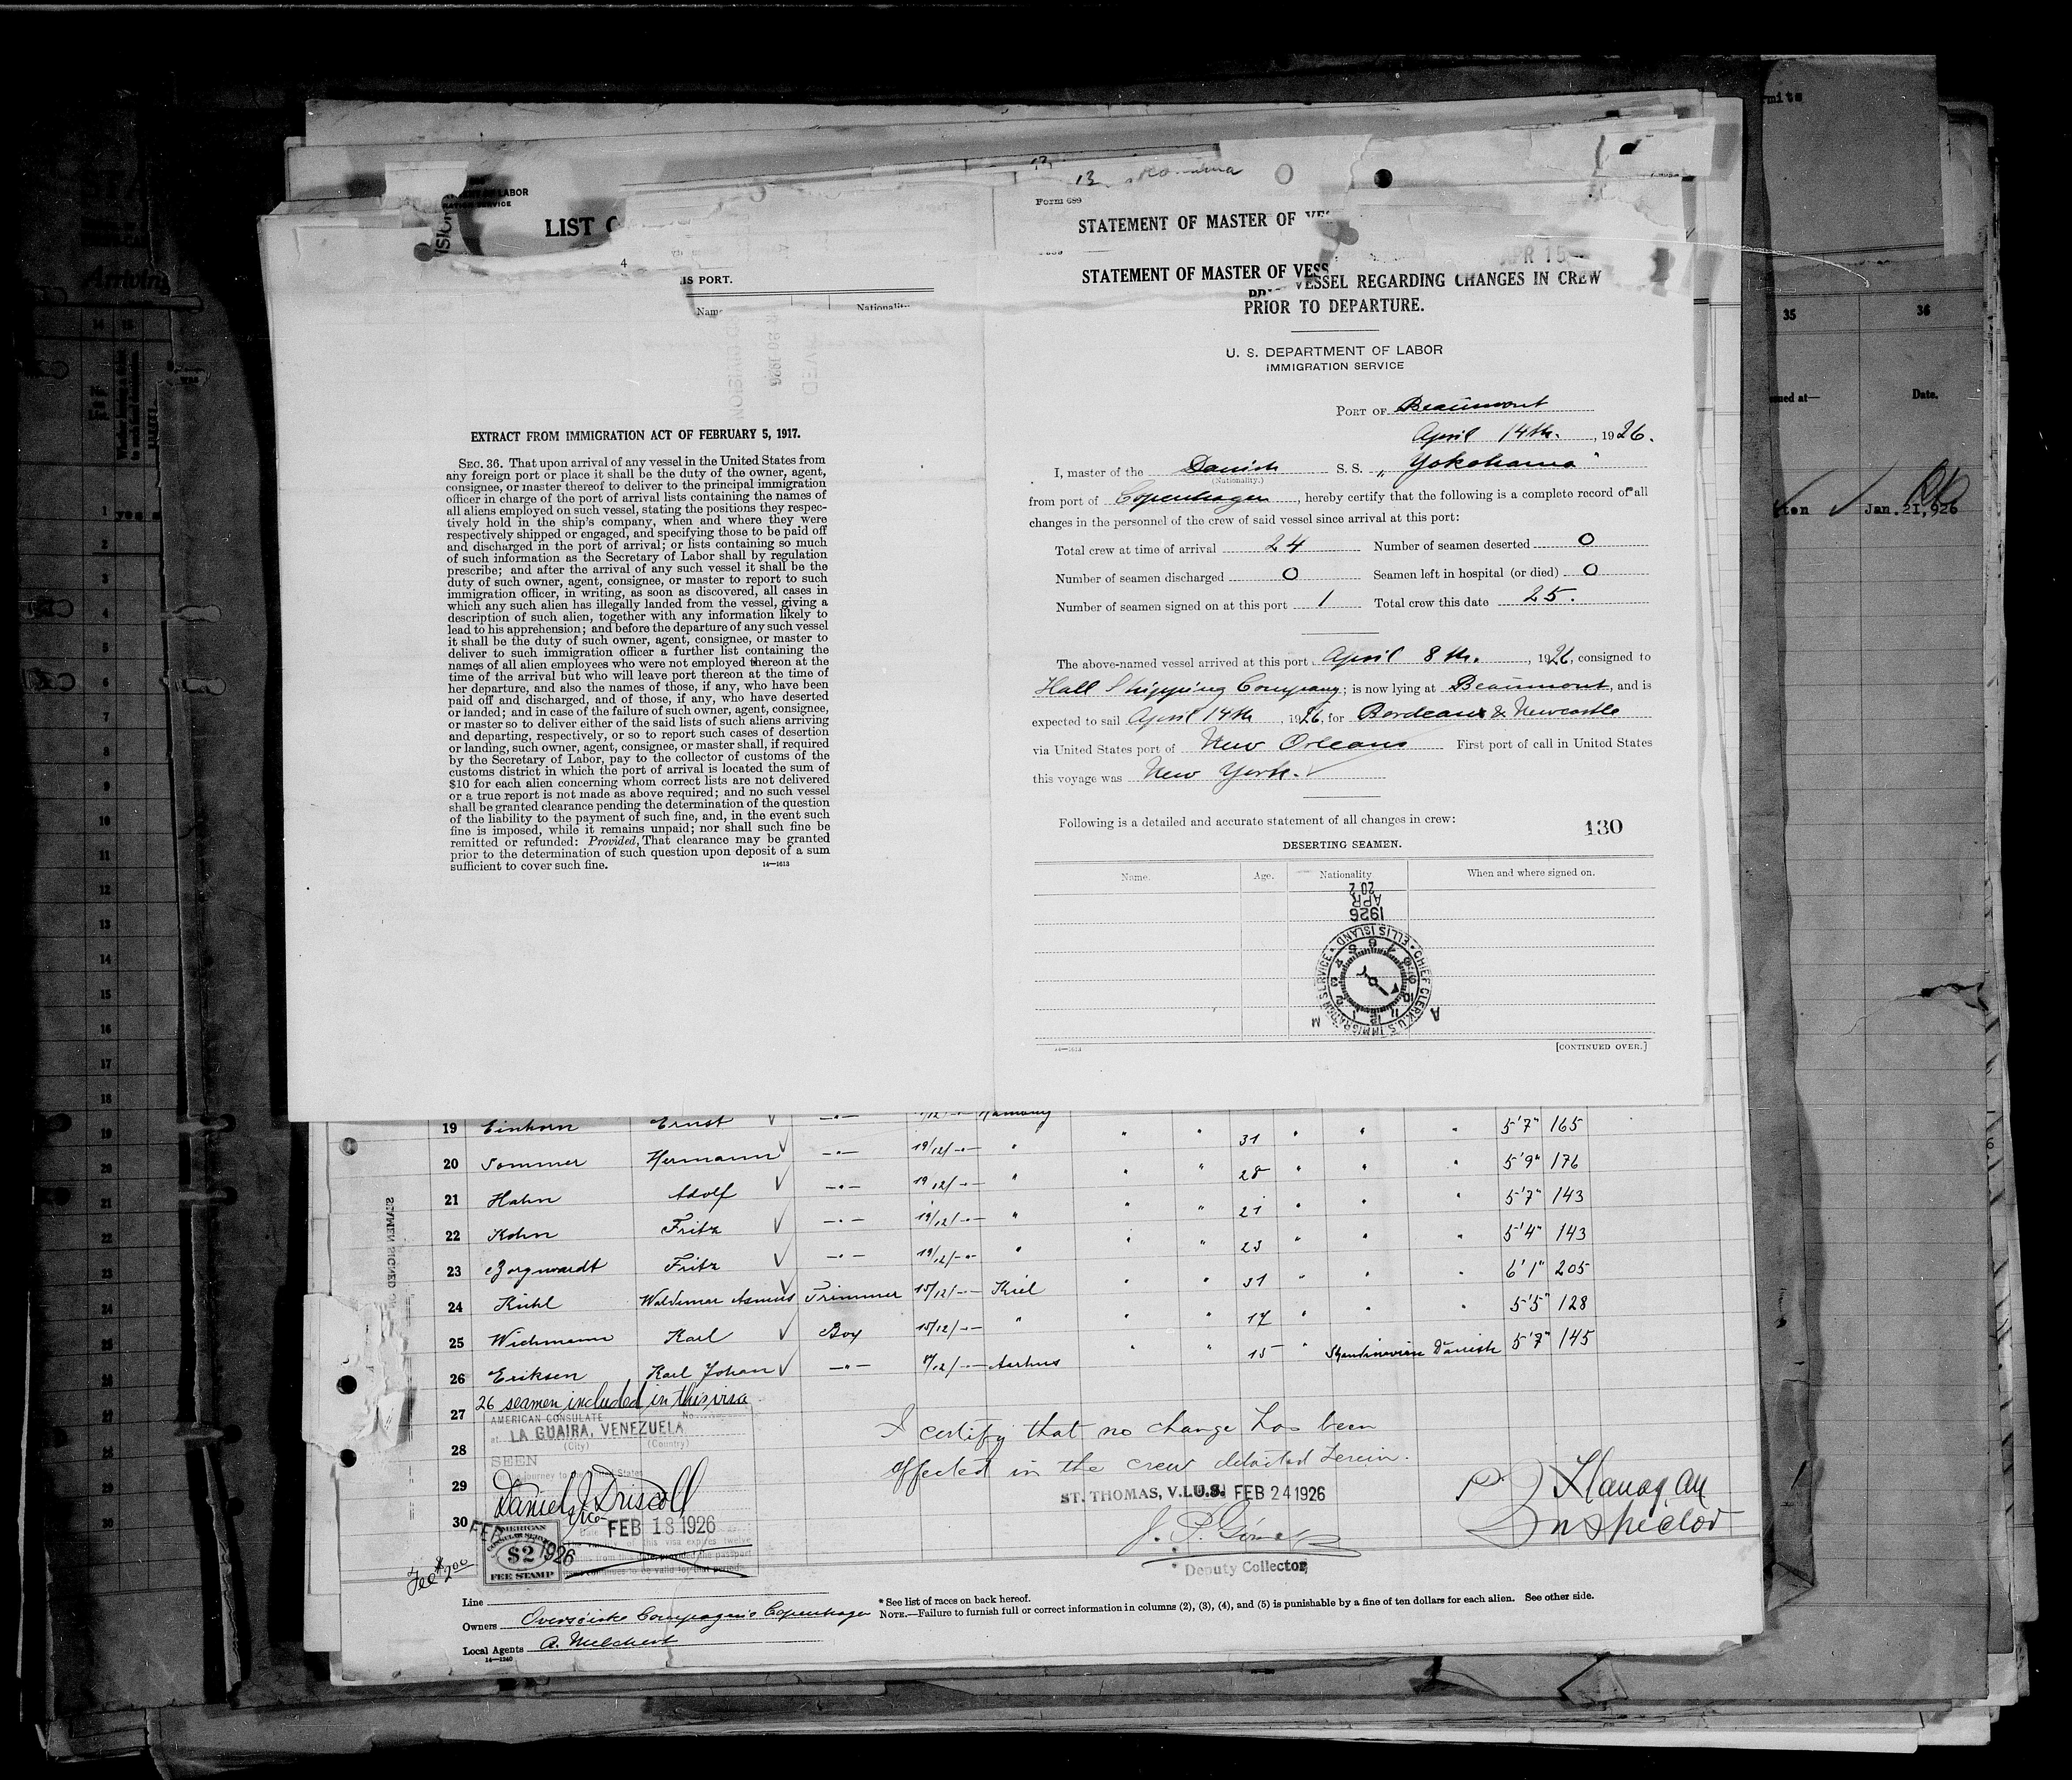 13
Form 689
STATEMENT OF MASTER OF
LIST
4
IS PORT.
Nationality
STATEMENT OF MASTER OF VESS
VESSEL REGARDING CHANGES IN CREW
PRIOR TO DEPARTURE.
APR 15
U. S. DEPARTMENT OF LABOR
IMMIGRATION SERVICE
PORT OF Beaumont
April 14th. , 1926.
I, master of the Danish S. S. „ Yokohama "
(Nationality.)
from port of Copenhagen , hereby certify that the following is a complete record of all
changes in the personnel of the crew of said vessel since arrival at this port:
Total crew at time of arrival 24 Number of seamen deserted 0
Number of seamen discharged 0 Seamen left in hospital (or died) 0
Number of seamen signed on at this port 1 Total crew this date 25.
The above-named vessel arrived at this port April 8th. , 1926, consigned to
Hall Shipping Company; is now lying at Beaumont, and is
expected to sail April 14th , 1926, for Bordeaux & Newcastle
via United States port of New Orleans First port of call in United States
this voyage was New York.
Following is a detailed and accurate statement of all changes in crew:
130
DESERTING SEAMEN.
Name. Age. Nationality When and where signed on.
20 2
APR
1926
CHIEF CLERK U.S. IMMIGRATION SERVICE ELLIS ISLAND
14—1613 [CONTINUED OVER.]
EXTRACT FROM IMMIGRATION ACT OF FEBRUARY 5, 1917.
SEC. 36. That upon arrival of any vessel in the United States from
any foreign port or place it shall be the duty of the owner, agent,
consignee, or master thereof to deliver to the principal immigration
officer in charge of the port of arrival lists containing the names of
all aliens employed on such vessel, stating the positions they respec-
tively hold in the ship's company, when and where they were
respectively shipped or engaged, and specifying those to be paid off
and discharged in the port of arrival; or lists containing so much
of such information as the Secretary of Labor shall by regulation
prescribe; and after the arrival of any such vessel it shall be the
duty of such owner, agent, consignee, or master to report to such
immigration officer, in writing, as soon as discovered, all cases in
which any such alien has illegally landed from the vessel, giving a
description of such alien, together with any information likely to
lead to his apprehension; and before the departure of any such vessel
it shall be the duty of such owner, agent, consignee, or master to
deliver to such immigration officer a further list containing the
names of all alien employees who were not employed thereon at the
time of the arrival but who will leave port thereon at the time of
her departure, and also the names of those, if any, who have been
paid off and discharged, and of those, if any, who have deserted
or landed; and in case of the failure of such owner, agent, consignee,
or master so to deliver either of the said lists of such aliens arriving
and departing, respectively, or so to report such cases of desertion
or landing, such owner, agent, consignee, or master shall, if required
by the Secretary of Labor, pay to the collector of customs of the
customs district in which the port of arrival is located the sum of
$10 for each alien concerning whom correct lists are not delivered
or a true report is not made as above required; and no such vessel
shall be granted clearance pending the determination of the question
of the liability to the payment of such fine, and, in the event such
fine is imposed, while it remains unpaid; nor shall such fine be
remitted or refunded: Provided, That clearance may be granted
prior to the determination of such question upon deposit of a sum
sufficient to cover such fine. 14—1613
19 Einhorn Ernst 5'7" 165
20 Sommer Hermann 19/12/ " 31 5'9" 176
21 Hahn Adolf 19/12/ " 28 5'7" 143
22 Kohn Fritz 19/12/ " 21 5'4" 143
23 Borgwardt Fritz 19/12/ " 23 6'1" 205
24 Kühl Waldemar Asmus Trimmer 15/12/ Kiel 31 5'5" 128
25 Wichmann Karl Boy 15/12/ " 17 5'7" 145
26 Eriksen Karl Johan Aarhus 15 Skandinavian Danish
27 26 seamen included in this visa
AMERICAN CONSULATE No.
at LA GUAIRA, VENEZUELA
(City) (Country)
28
SEEN
29
Daniel J. Driscoll
30
FEB 18 1926
AMERICAN CONSULAR SERVICE
$2
FEE STAMP
Fee $2.00
I certify that no change has been
effected in the crew detailed herein.
ST. THOMAS, V.I.U.S. FEB 24 1926
Deputy Collector
Flanagan
Inspector
Line
Owners Oversøiske Compagnie Copenhagen
Local Agents A. Melchert
14—1240
* See list of races on back hereof.
NOTE.—Failure to furnish full or correct information in columns (2), (3), (4), and (5) is punishable by a fine of ten dollars for each alien. See other side.
Arriving
14 15
35 36
Date.
Jan. 21, 926